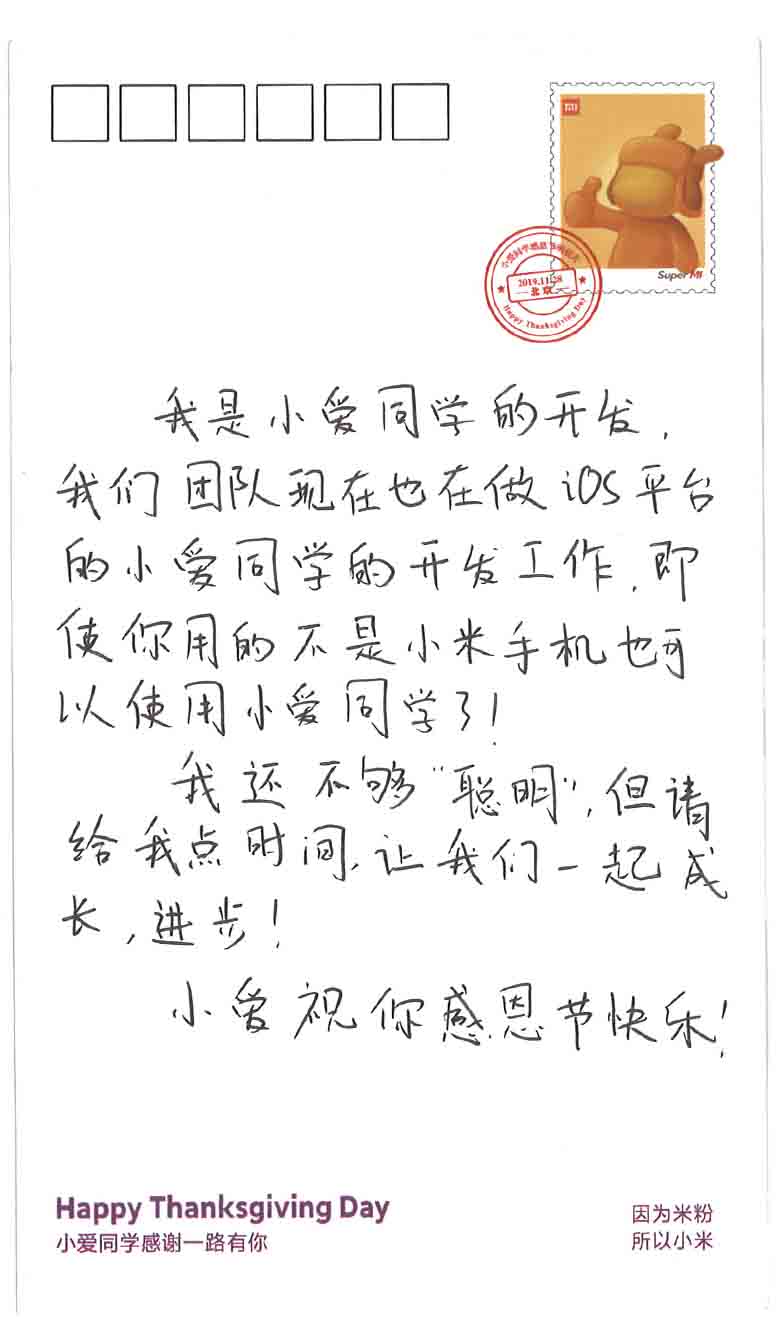 MI
Super MI
小爱同学感恩节明信片
2019.11.28
北京
Happy Thanksgiving Day
我是小爱同学的开发,
我们团队现在也在做iOS平台
的小爱同学的开发工作,即
使你用的不是小米手机也可
以使用小爱同学了!
我还不够“聪明”,但请
给我点时间,让我们一起成
长,进步!
小爱祝你感恩节快乐!
Happy Thanksgiving Day
小爱同学感谢一路有你
因为米粉
所以小米